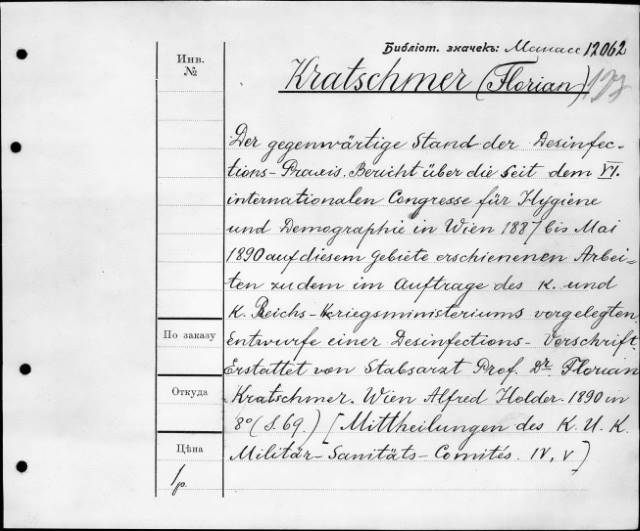 Библіот. значекъ: Манасс 12062
Инв.
№
Kratschmer (Florian)
Der gegenwärtige Stand der Desinfec-
tions-Praxis. Bericht über die seit dem VI.
internationalen Congresse für Hygiene
und Demographie in Wien 1887 bis Mai
1890 auf diesem Gebiete erschienenen Arbei-
ten zu dem im Auftrage des K. und
K. Reichs-Kriegsministeriums vorgelegten
Entwurfe einer Desinfections-Vorschrift.
Erstattet von Stabsarzt Prof. Dr. Florian
Kratschmer. Wien Alfred Holder. 1890 in
8° (S. 69.) [Mittheilungen des K. U. K.
Militär-Sanitäts-Comités. IV, V)
По заказу
Откуда
Цѣна
1 р.